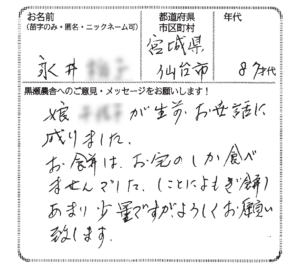 お名前
(苗字のみ・匿名・ニックネーム可)
都道府県
市区町村
年代
永井
宮城県
仙台市
87才代
黒瀬農舎へのご意見・メッセージをお願いします!
娘 が生前お世話に
成りました。
お餅は、お宅のしか食べ
ませんでした。(ことによもぎ餅)
あまり少量ですがよろしくお願い
致します。